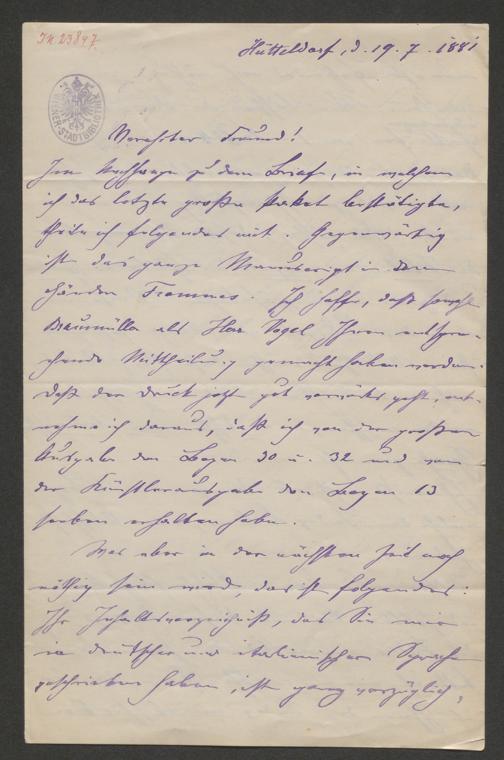 IN 23897
WIENER-STADTBIBLIOTHEK
Hütteldorf, d. 19. 7. 1881
Verehrter Freund!
Im Nachhange zu dem Briefe, in welchem
ich das letzte große Paket bestätigte,
theile ich folgendes mit. Gegenwärtig
ist das ganze Manuscript in den
Händen Frommes. Ich hoffe, daß sowohl
Braumüller als Herr Vogel Ihnen entspre-
chende Mittheilung gemacht haben werden.
Daß der Druck jetzt gut vorwärts geht, ent-
nehme ich daraus, daß ich von der großen
Ausgabe den Bogen 30 u. 32 und von
der Künstlerausgabe den Bogen 13
soeben erhalten habe.
Was aber in der nächsten Zeit noch
nöthig sein wird, das ist folgendes:
Ihr Inhaltsverzeichniß, das Sie mir
in deutscher und italienischer Sprache
geschrieben haben, ist ganz vorzüglich,